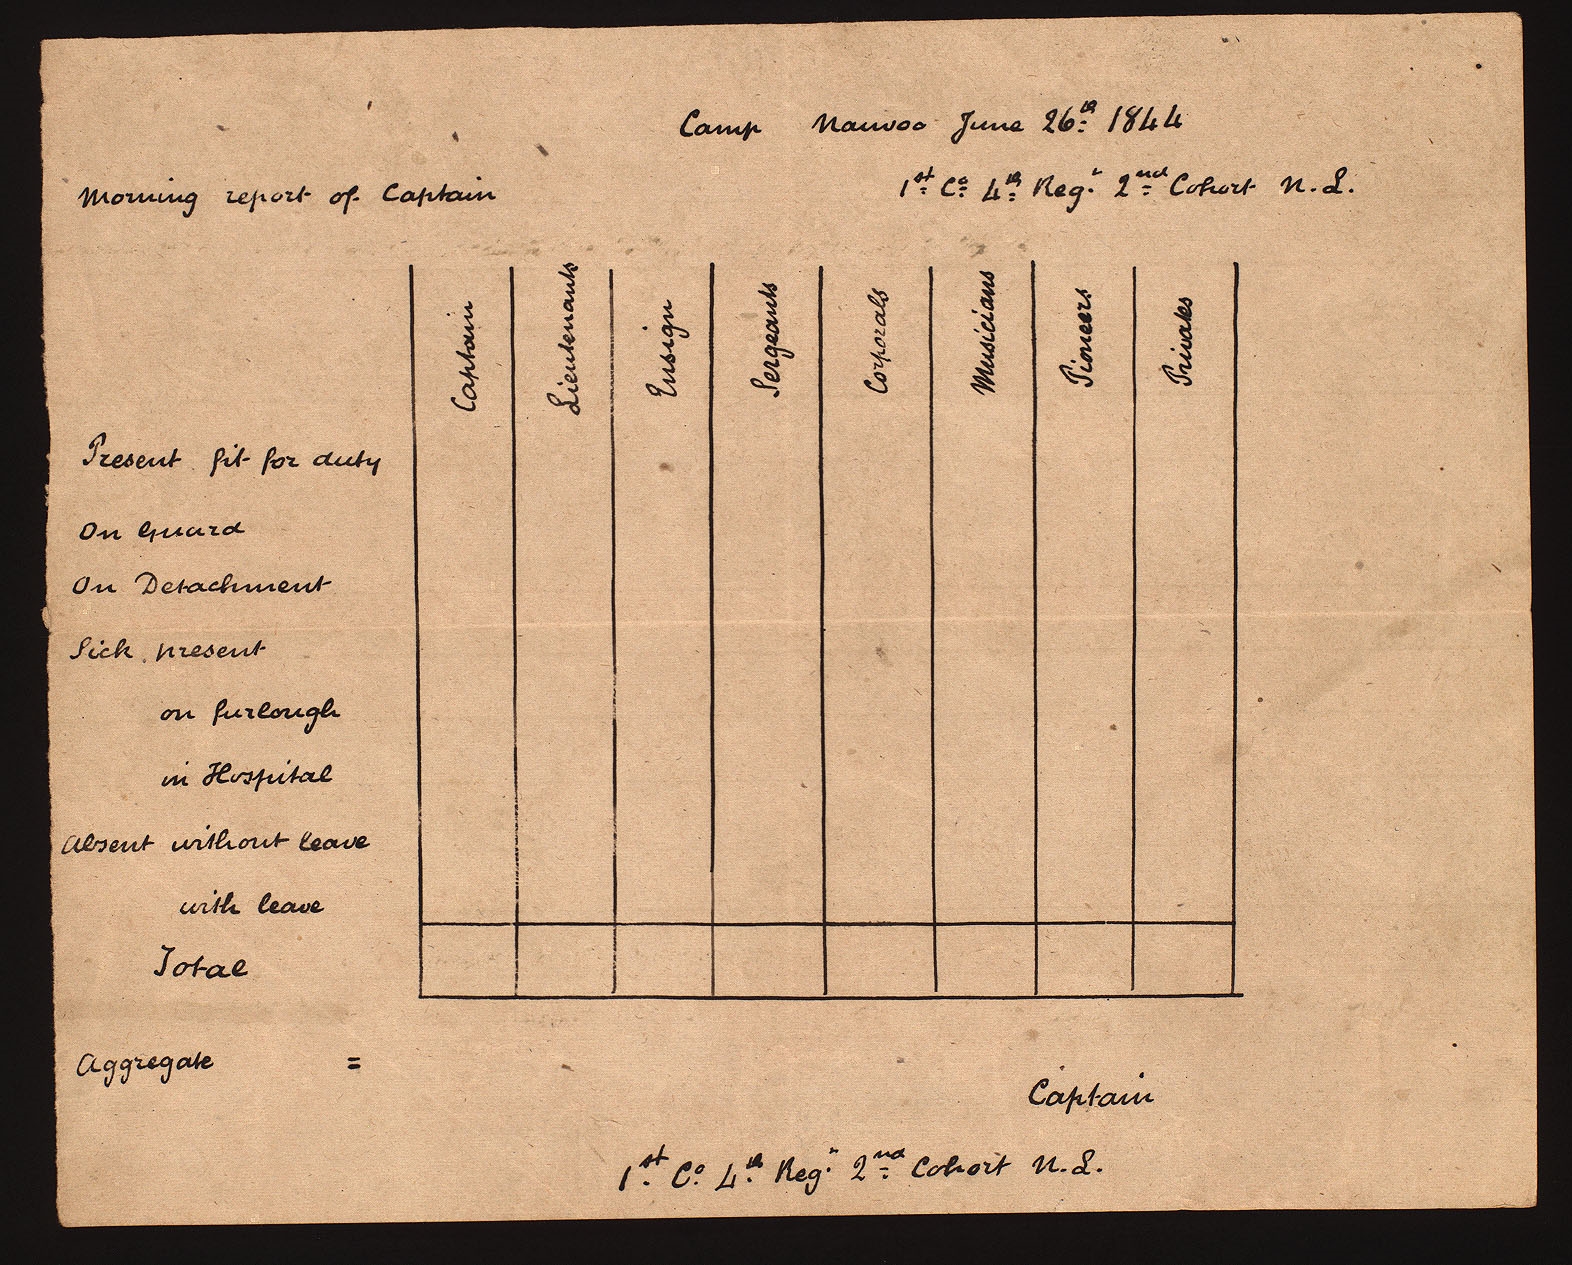 Camp Nauvoo June 26th 1844
Morning report of Captain 1st Co 4th Reg. 2nd Cohort N. L.
Captain Lieutenants Ensign Sergeants Corporals Musicians Pioneers Privates
Present fit for duty
On Guard
On Detachment
Sick present
on furlough
in Hospital
Absent without leave
with leave
Total
Aggregate =
Captain
1st Co 4th Reg. 2nd Cohort N. L.